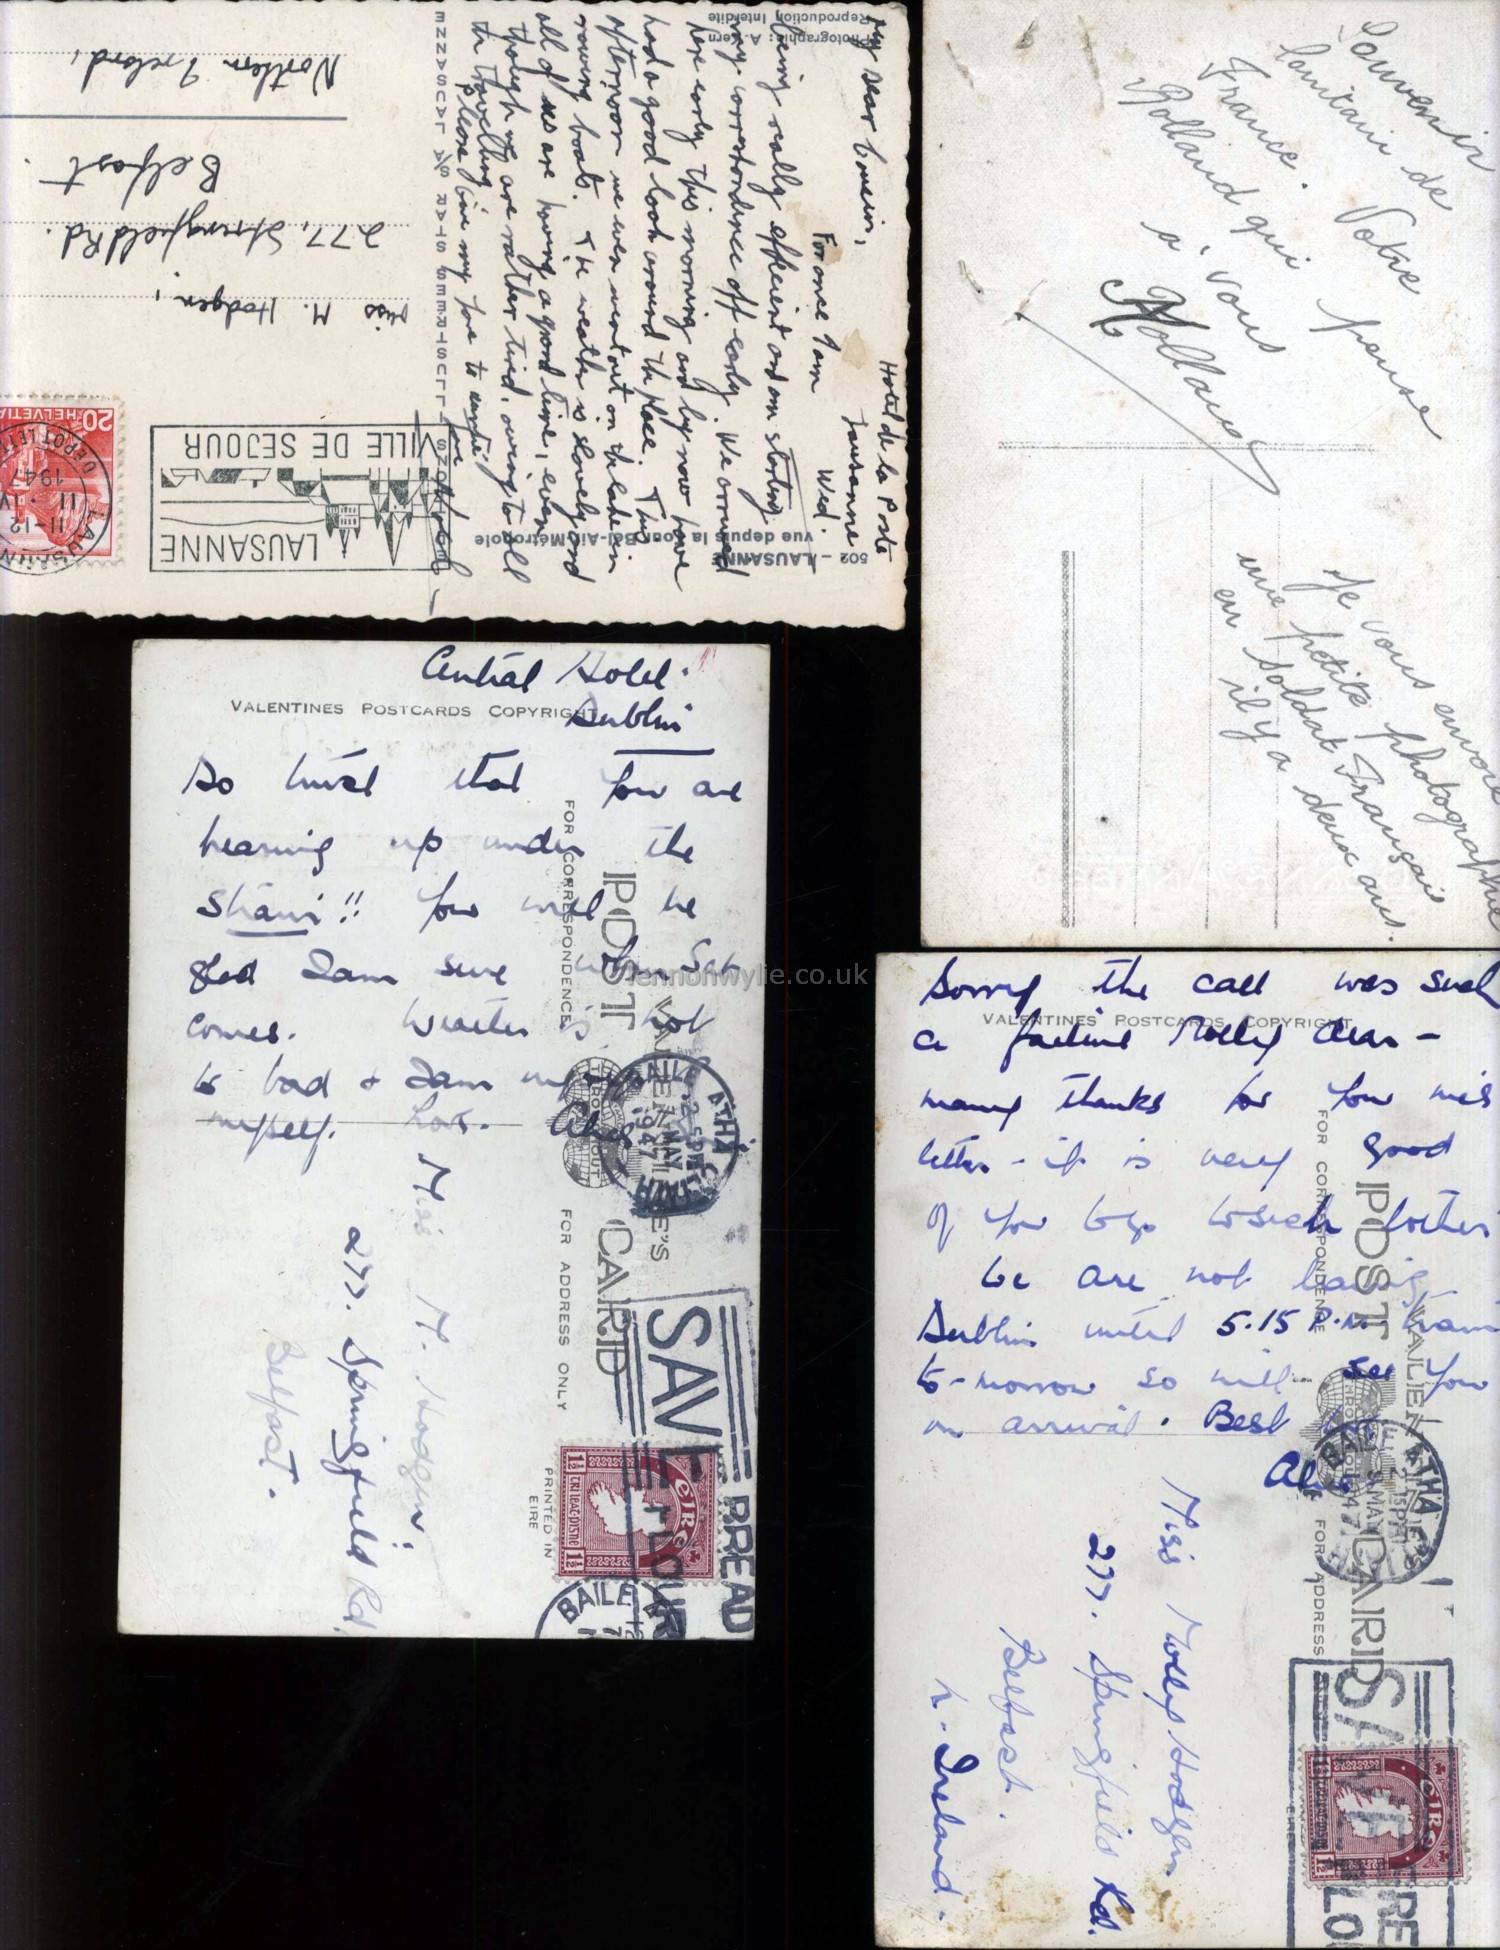 Hotel de la Poste
Lausanne
Wed.
My dear Cousin,
For once I am
being really efficient and am starting
my correspondence off early. We arrived
here early this morning and by now have
had a good look around the place. This
afternoon we even went out on the lake in
rowing boats. The weather is lovely and
all of us are having a grand time, even
though we are rather tired, owing to all
the travelling.
Please give my love to
502 - LAUSANNE
vue depuis la Tour Bel-Air Métropole
Photographie: A. Kern
Reproduction Interdite
LAUSANNE
VILLE DE SEJOUR
LAUSANNE
11-12
11. IV
1947
DEPOT LETT
20
HELVETIA
Miss M. Hodgen,
277, Springfield Rd.
Belfast.
Northern Ireland,
Souvenir
lointain de
France. Votre
Rolland qui pense
à vous
Rolland
Je vous envoie
une petite photographie
en soldat Français
il y a deux ans.
Central Hotel.
Dublin
VALENTINES POSTCARDS COPYRIGHT
Do trust that you are
bearing up under the
strain!! You will be
glad I am sure when Sat
comes. Weather is not
to bad & I am
myself.
VALENTINE'S
POST CARD
FOR CORRESPONDENCE
FOR ADDRESS ONLY
PRINTED IN
EIRE
BAILE ÁTHA CLIATH
MAY
1947
SAVE BREAD
FLOUR
éire
1½
BAILE
Miss M. Hodgen.
277. Springfield Rd.
Belfast.
Sorry the call was such
VALENTINES POSTCARDS COPYRIGHT
a failure Molly dear -
many thanks for your nice
letter - it is very good
of you to go to see
We are not leaving
Dublin until 5.15 P.M. train
to-morrow so will see you
on arrival. Best
VALENTINE'S
POST CARD
FOR CORRESPONDENCE
FOR ADDRESS ONLY
EIRE
BAILE ÁTHA
MAY
1947
SAVE
FLO
éire
1½
Miss Molly Hodgen
277. Springfield Rd.
Belfast.
N. Ireland.
lennonwylie.co.uk